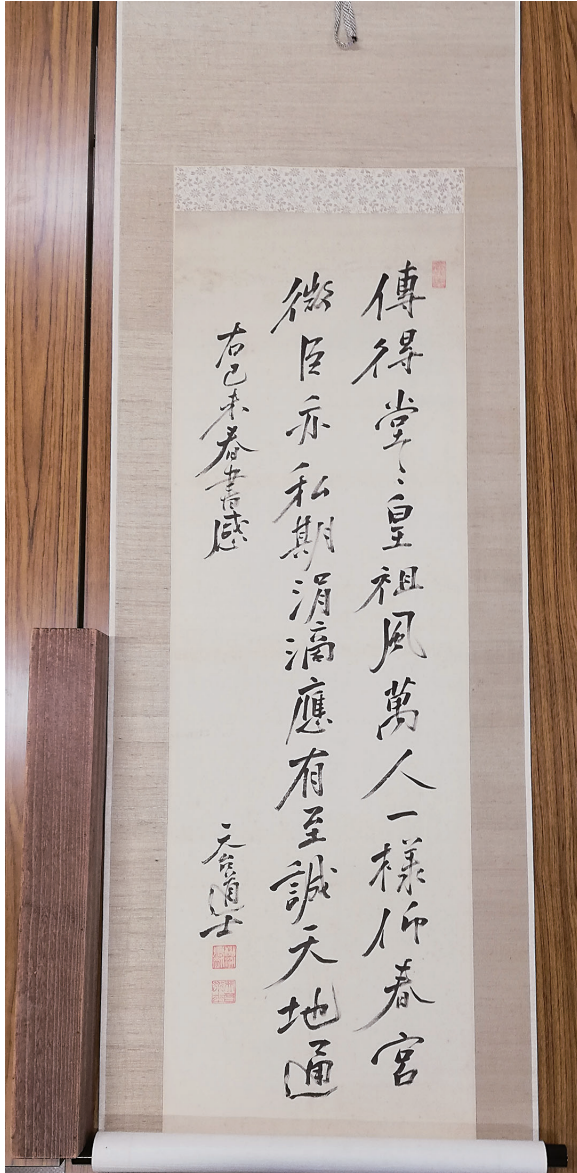 傳得堂〻皇祖風萬人一樣仰春宮
微臣亦私期涓滴應有至誠天地通
右己未春書感
天台道士